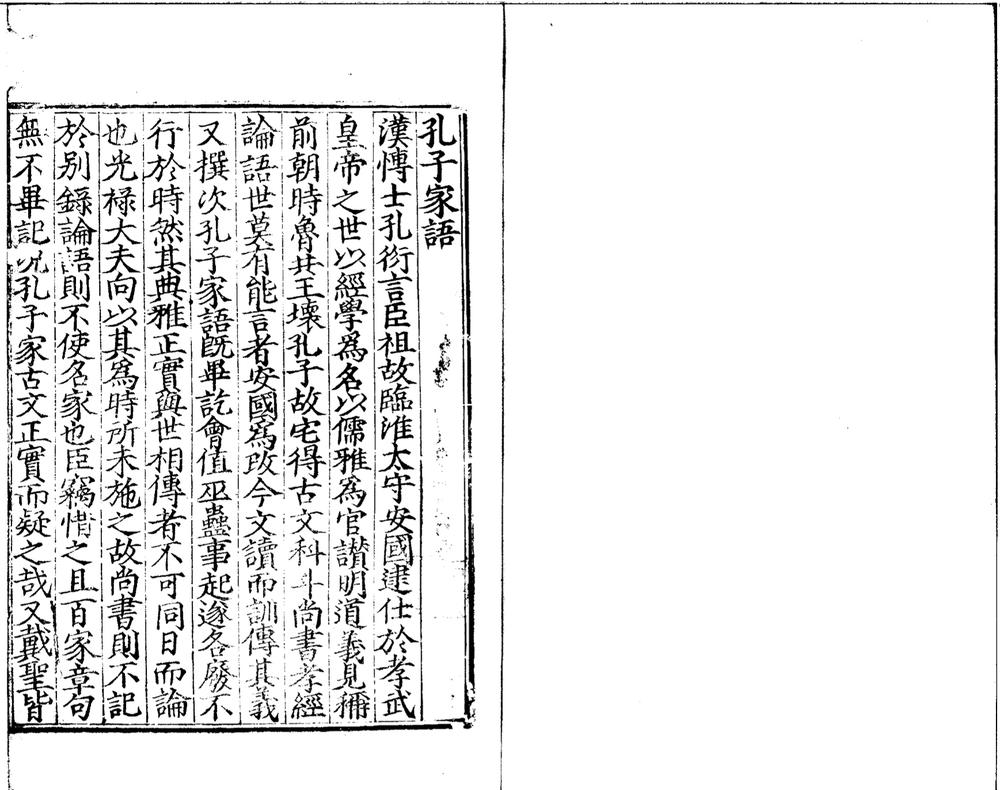 孔子家語
漢愽士孔衍言臣祖故臨淮太守安國逮仕於孝武
皇帝之世以經學爲名以儒雅爲官讃明道義見稱
前朝時魯共王壞孔子故宅得古文科斗尚書孝經
論語世莫有能言者安國爲攺今文讀而訓傳其義
又撰次孔子家語旣畢訖會值巫蠱事起遂各廢不
行於時然其典雅正實與世相傳者不可同日而論
也光禄大夫向以其爲時所未施之故尚書則不記
於别錄論語則不使名家也臣竊惜之且百家章句
無不畢記况孔子家古文正實而疑之哉又戴聖皆